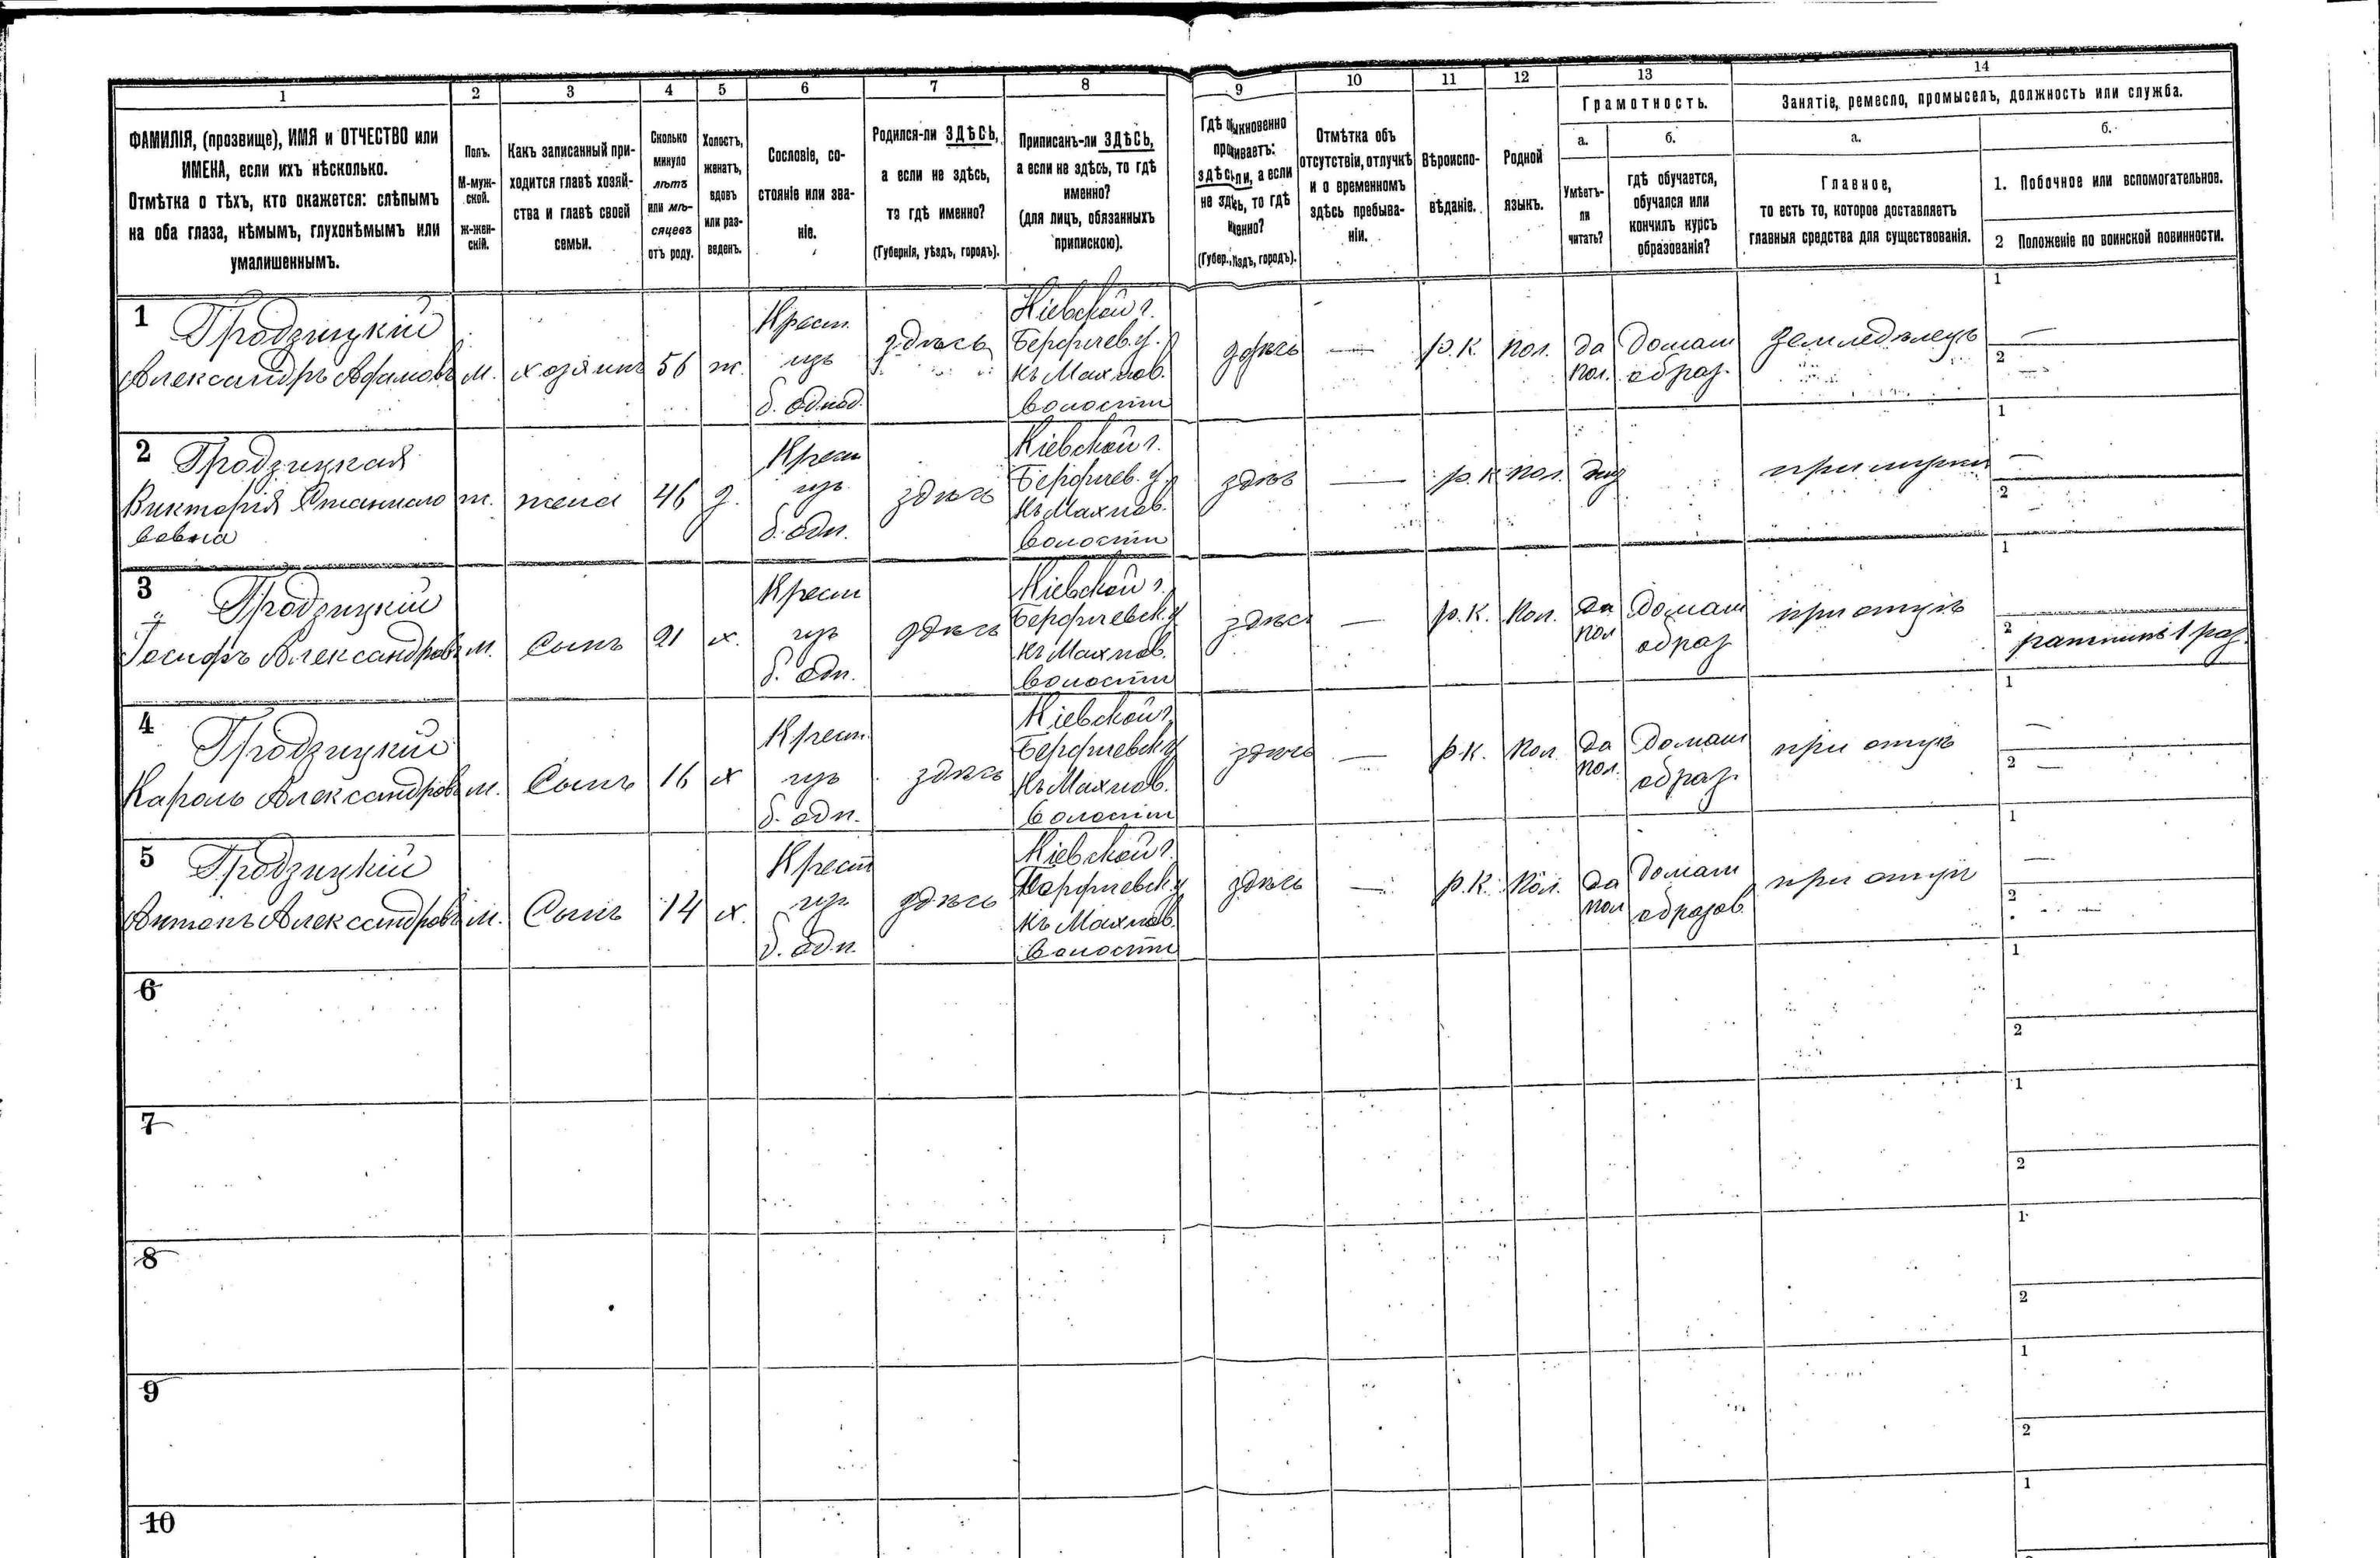 1 2 3 4 5 6 7 8 9 10 11 12 13 14
ФАМИЛІЯ, (прозвище), ИМЯ и ОТЧЕСТВО или
ИМЕНА, если ихъ нѣсколько.
Отмѣтка о тѣхъ, кто окажется: слѣпымъ
на оба глаза, нѣмымъ, глухонѣмымъ или
умалишеннымъ.
Полъ.
М-муж-
ской.
ж-жен-
скій.
Какъ записанный при-
ходится главѣ хозяй-
ства и главѣ своей
семьи.
Сколько
минуло
лѣтъ
или мѣ-
сяцевъ
отъ роду.
Холостъ,
женатъ,
вдовъ
или раз-
веденъ.
Сословіе, со-
стояніе или зва-
ніе.
Родился-ли ЗДѢСЬ,
а если не здѣсь,
то гдѣ именно?
(Губернія, уѣздъ, городъ).
Приписанъ-ли ЗДѢСЬ,
а если не здѣсь, то гдѣ
именно?
(для лицъ, обязанныхъ
припискою).
Гдѣ обыкновенно
проживаетъ:
здѣсь-ли, а если
не здѣсь, то гдѣ
именно?
(Губер., уѣздъ, городъ).
Отмѣтка объ
отсутствіи, отлучкѣ
и о временномъ
здѣсь пребыва-
ніи.
Вѣроиспо-
вѣданіе.
Родной
языкъ.
Грамотность.
а.
Умѣетъ-
ли
читать?
б.
гдѣ обучается,
обучался или
кончилъ курсъ
образованія?
Занятіе, ремесло, промыселъ, должность или служба.
а.
Главное,
то есть то, которое доставляетъ
главныя средства для существованія.
б.
1. Побочное или вспомогательное.
2 Положеніе по воинской повинности.
1 Гродзицкій
Александръ Адамовъ
м.
хозяинъ
56
ж.
Крест.
изъ
б. однод.
здѣсь
Кіевской г.
Бердичев. у.
къ Махнов.
волости
здѣсь
—
р. к.
пол.
да
пол.
Домаш
образ.
Земледѣлецъ
1 —
2 —
2 Гродзицкая
Викторія Станисло
вовна
ж.
жена
46
з.
Крест
изъ
б. одн.
здѣсь
Кіевской г.
Бердичев. у.
къ Махнов.
волости
здѣсь
—
р. к
пол.
при мужѣ
1 —
2
3 Гродзицкій
Іосифъ Александровъ
м.
Сынъ
21
х.
Крест
изъ
б. одн.
здѣсь
Кіевской г.
Бердичевск. у
къ Махнов.
волости
здѣсь
—
р. к.
пол.
да
пол
Домаш
образ
при отцѣ
1
2 ратникъ 1 раз.
4 Гродзицкій
Кароль Александровъ
м.
Сынъ
16
х
Крест.
изъ
б. одн.
здѣсь
Кіевской г.
Бердичевск у
къ Махнов.
волости
здѣсь
—
р. к.
пол.
да
пол.
Домаш
образ.
при отцѣ
1 —
2 —
5 Гродзицкій
Антонъ Александровъ
м.
Сынъ
14
х.
Крест
изъ
б. одн.
здѣсь
Кіевской г.
Бердичевск. у
къ Махнов.
волости
здѣсь
—
р. к.
пол.
да
пол
Домаш
образов
при отцѣ
1 —
2 —
6
1
2
7
1
2
8
1
2
9
1
2
10
1